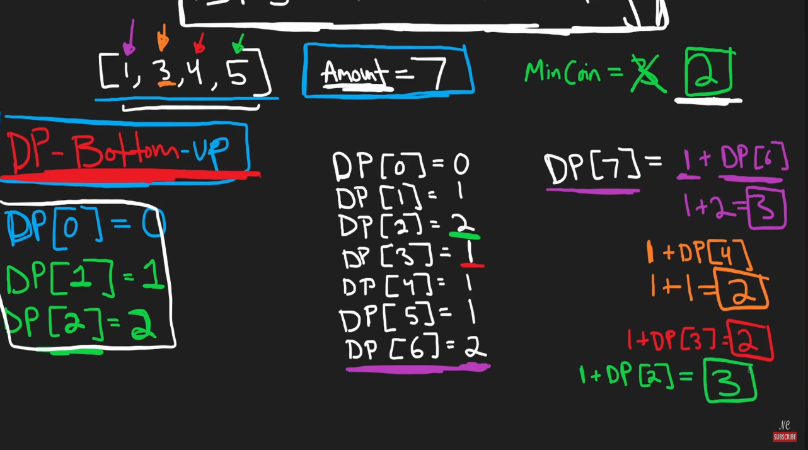 [1, 3, 4, 5]
Amount = 7
MinCoin = 2
DP-Bottom-up
DP[0] = 0
DP[1] = 1
DP[2] = 2
DP[0] = 0
DP[1] = 1
DP[2] = 2
DP[3] = 1
DP[4] = 1
DP[5] = 1
DP[6] = 2
DP[7] = 1 + DP[6]
1+2=3
1 + DP[4]
1+1=2
1+DP[3]=2
1+DP[2]=3
NC
SUBSCRIBE